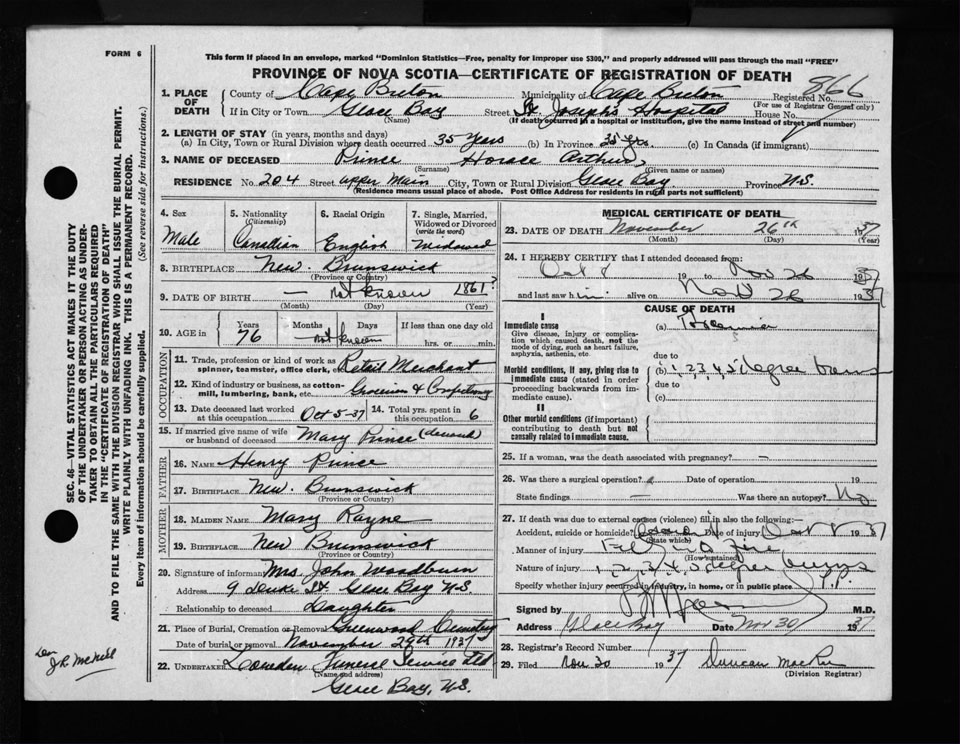 FORM 6
This form if placed in an envelope, marked "Dominion Statistics—Free, penalty for improper use $300," and properly addressed will pass through the mail "FREE"
PROVINCE OF NOVA SCOTIA—CERTIFICATE OF REGISTRATION OF DEATH
866
1. PLACE OF DEATH
County of Cape Breton Municipality of Cape Breton Registered No.
(For use of Registrar General only)
If in City or Town Glace Bay Street St. Joseph's Hospital House No.
(Name) (If death occurred in a hospital or institution, give the name instead of street and number)
2. LENGTH OF STAY (in years, months and days)
(a) In City, Town or Rural Division where death occurred 35 Years (b) In Province 35 yrs (c) In Canada (if immigrant)
3. NAME OF DECEASED Prince Horace Arthur
(Surname) (Given name or names)
RESIDENCE No. 204 Street upper Main City, Town or Rural Division Glace Bay Province N.S.
(Residence means usual place of abode. Post Office Address for residents in rural parts not sufficient)
4. Sex
Male
5. Nationality
(Citizenship)
Canadian
6. Racial Origin
English
7. Single, Married, Widowed or Divorced
(write the word)
Widowed
8. BIRTHPLACE New Brunswick
(Province or Country)
9. DATE OF BIRTH — not known 1861?
(Month) (Day) (Year)
10. AGE in
Years Months Days If less than one day
76 not known hrs. or min.
OCCUPATION
11. Trade, profession or kind of work as spinner, teamster, office clerk, etc. Retail Merchant
12. Kind of industry or business, as cotton-mill, lumbering, bank, etc.
13. Date deceased last worked at this occupation Oct 5-37
14. Total yrs. spent in this occupation 6
15. If married give name of wife or husband of deceased Mary Prince
FATHER
16. NAME Henry Prince
17. BIRTHPLACE New Brunswick
(Province or Country)
MOTHER
18. MAIDEN NAME Mary Rayne
19. BIRTHPLACE New Brunswick
(Province or Country)
20. Signature of informant Mrs. John Woodburn
Address 9 St Glace Bay N.S.
Relationship to deceased Daughter
21. Place of Burial, Cremation or Removal Greenwood Cemetery
Date of burial or removal November 29th 1937
22. UNDERTAKER Funeral Service Ltd
(Name and address)
Glace Bay, N.S.
MEDICAL CERTIFICATE OF DEATH
23. DATE OF DEATH November 26th 1937
(Month) (Day) (Year)
24. I HEREBY CERTIFY that I attended deceased from:
Oct 8 19 to Nov 26 1937
and last saw him alive on Nov 26 1937
CAUSE OF DEATH
I
Immediate cause
Give disease, injury or complication which caused death, not the mode of dying, such as heart failure, asphyxia, asthenia, etc.
(a)
due to
Morbid conditions, if any, giving rise to immediate cause (stated in order proceeding backwards from immediate cause).
(b) 1,2,3,4,5 degree burns
due to
(c)
II
Other morbid conditions (if important) contributing to death but not causally related to immediate cause.
25. If a woman, was the death associated with pregnancy? —
26. Was there a surgical operation? Date of operation 19
State findings — Was there an autopsy? No
27. If death was due to external causes (violence) fill in also the following:
Accident, suicide or homicide? Date of injury Oct 8 1937
(State which)
Manner of injury
(How sustained)
Nature of injury 1,2,3,4,5 degree burns
Specify whether injury occurred in industry, in home, or in public place
Signed by M.D.
Address Glace Bay Date Nov 30 1937
28. Registrar's Record Number
29. Filed Nov. 30 1937 Duncan MacRae
(Division Registrar)
SEC. 46—VITAL STATISTICS ACT MAKES IT THE DUTY OF THE UNDERTAKER OR PERSON ACTING AS UNDERTAKER TO OBTAIN ALL THE PARTICULARS REQUIRED IN THE "CERTIFICATE OF REGISTRATION OF DEATH" AND TO FILE THE SAME WITH THE DIVISION REGISTRAR WHO SHALL ISSUE THE BURIAL PERMIT.
WRITE PLAINLY WITH UNFADING INK. THIS IS A PERMANENT RECORD.
Every item of information should be carefully supplied. (See reverse side for instructions.)